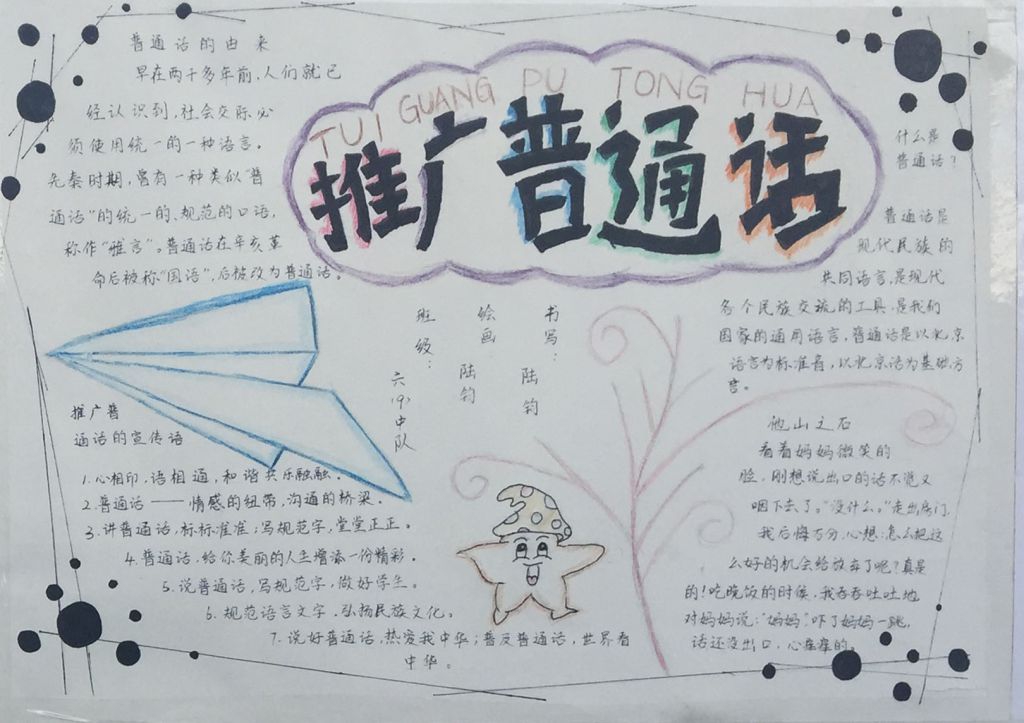 TUI GUANG PU TONG HUA
推广普通话
普通话的由来
早在两千多年前,人们就已
经认识到,社会交际必
须使用统一的一种语言。
先秦时期,曾有一种类似“普
通话”的统一的、规范的口语,
称作“雅言”。普通话在辛亥革
命后被称“国语”,后被改为普通话。
什么是
普通话?
普通话是
现代民族的
共同语言,是现代
各个民族交流的工具,是我们
国家的通用语言,普通话是以北京
语言为标准音,以北京话为基础方
言。
书写:陆钧
绘画 陆钧
班级:六(9)中队
推广普
通话的宣传语
1.心相印,语相通,和谐共乐融融。
2.普通话——情感的纽带,沟通的桥梁。
3.讲普通话,标标准准;写规范字,堂堂正正。
4.普通话,给你美丽的人生增添一份精彩。
5.说普通话,写规范字,做好学生。
6.规范语言文字,弘扬民族文化。
7.说好普通话,热爱我中华;普及普通话,世界看
中华。
他山之石
看着妈妈微笑的
脸,刚想说出口的话不觉又
咽下去了。“没什么。”走出房门,
我后悔万分,心想:怎么把这
么好的机会给放弃了呢?真是
的!吃晚饭的时候,我吞吞吐吐地
对妈妈说:“妈妈”.吓了妈妈一跳,
话还没出口,心座座的。